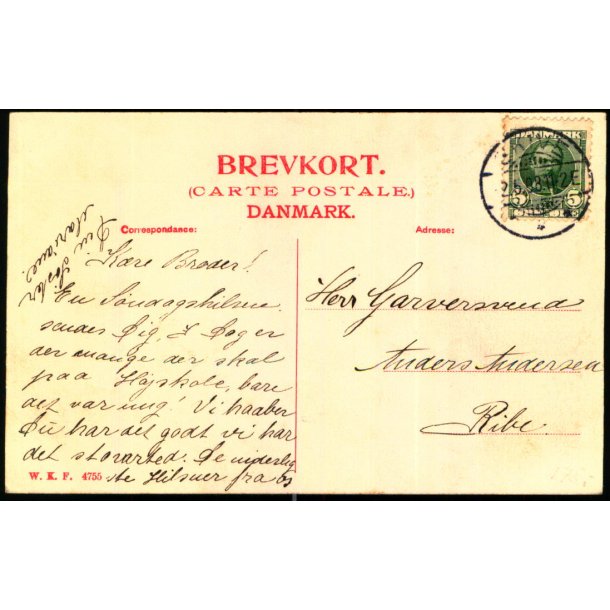 BREVKORT.
(CARTE POSTALE.)
DANMARK.
Correspondance:
Adresse:
DANMARK
5 5
Kære Broder!
En Søndagshilsen
sendes Dig, I Dag er
der mange der skal
paa Højskole, bare
det var mig! Vi haaber
Du har det godt vi har
det storartet. De inderlig
ste Hilsner fra os
Din Søster
Herr Garversvend
Anders Andersen
Ribe.
W. K. F. 4755